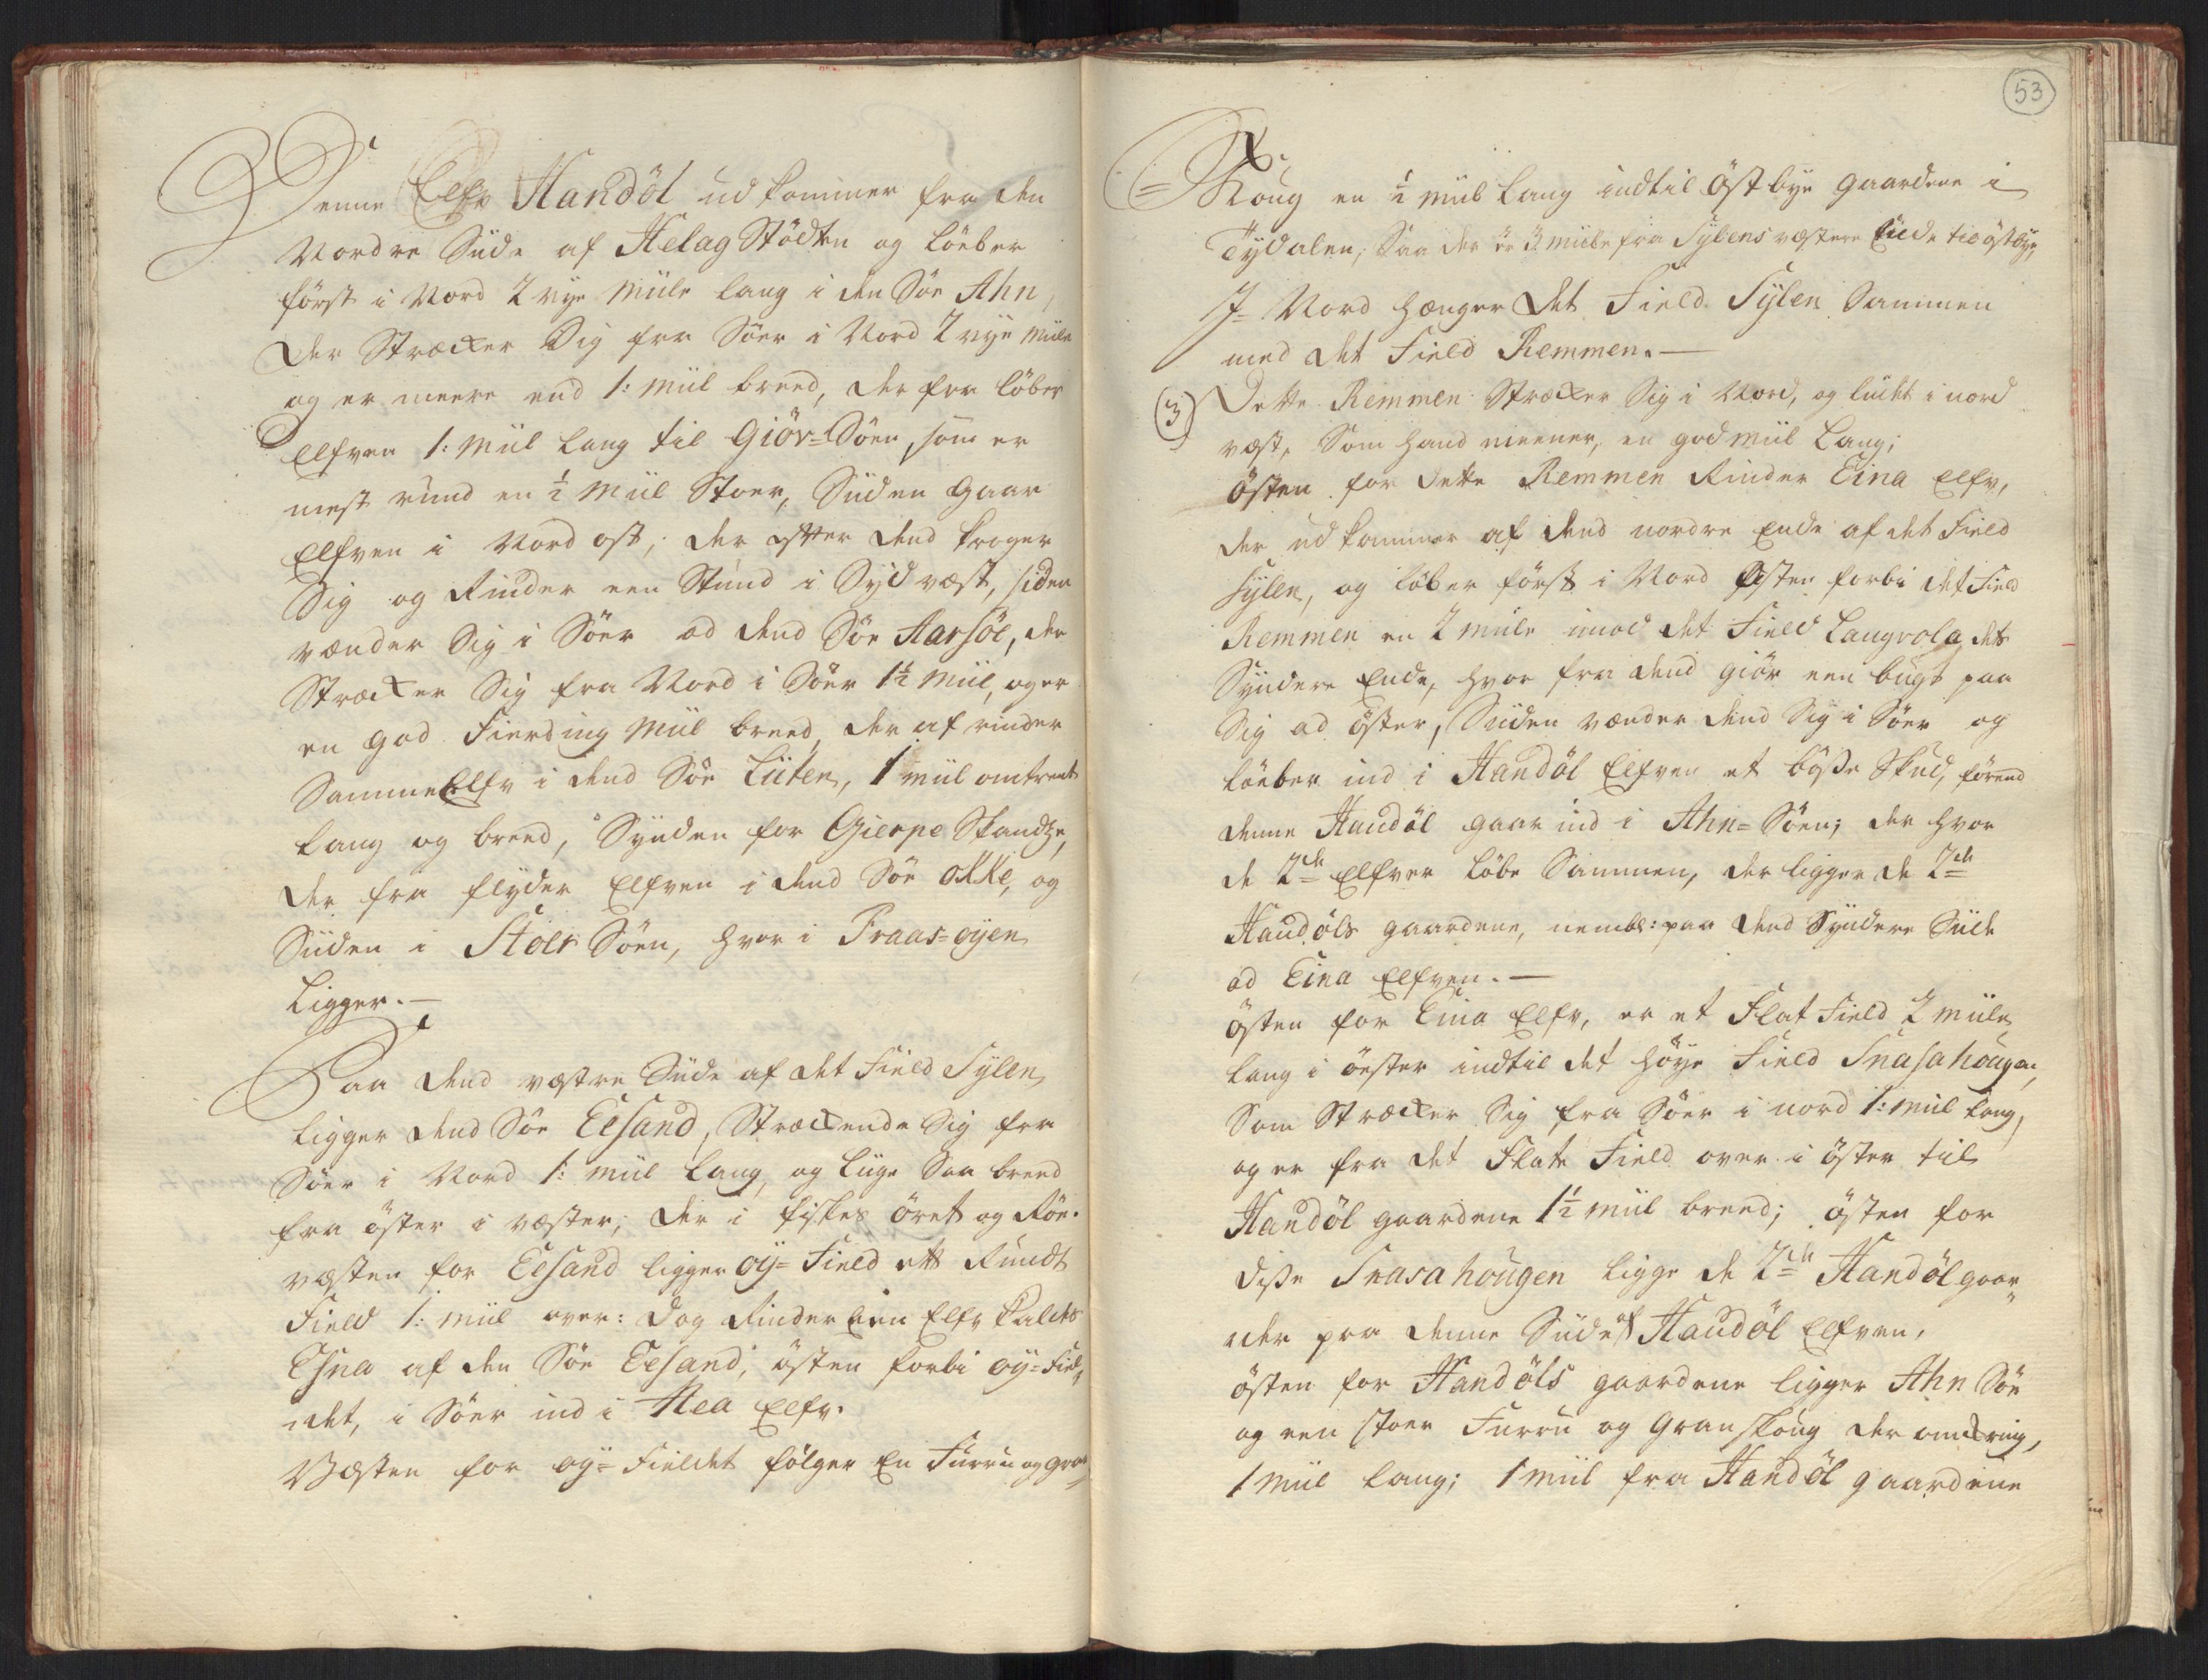 Denne Elfv Handöl udkommer fra den
Nordre Siide af Helag Stödten og löeber
först i Nord 2 nye Miile lang i den Söe Ahn,
der Stræcker Sig fra Söer i Nord 2 nye Miile
og er meere end 1: Miil breed, der fra löber
Elfven 1: Miil lang til Giöv-Söen, som er
mest rund en ½ Miil Stoer, Siiden gaar
Elfven i Nord ost; der efter dend kroger
Sig og Rinder een Stund i Sydvæst, siden
vænder Sig i Söer ad dend Söe Aarsöe, der
Stræcker Sig fra Nord i Söer 1½ Miil, og er
en god Fierding Miil breed, der af rinder
Samme Elfv i dend Söe Liiten, 1 miil omtrent
lang og breed, Synden for Gierpe Skandtze,
der fra flyder Elfven i dend Söe okke, og
Siiden i Stoer Söen, hvor i Fraas-øyen
Ligger.—
Paa dend væstre Siide af det Field Sylen
ligger dend Söe Eesand, Stræckende Sig fra
Söer i Nord 1: miil lang, og liige Saa breed
fra öster i væster; der i fiskes öret og Röe.
væsten for Eesand ligger øy-Field ett Rundt
Field 1: miil over: dog Rinder een Elfv kaldes
Esna af den Söe Eesand, östen forbi øy-Fiel,,
det, i Söer ind i Nea Elfv.
Væsten for øy-Fieldet fölger En Furru og gran
53
=
Skoug en ½ miil lang indtil Östbye gaardene i
Tydalen, Saa der er 3 miile fra Sylens væstere Siide til östbye,
I Nord hænger det Field Sylen Sammen
med det Field Remmen.—
(3) Dette Remmen Stræcker Sig i Nord, og lidet i nord
væst, Som hand meener, en god miil Lang;
östen for dette Remmen Rinder Eina Elfv,
der udkommer af dend nordre Ende af det Field
Sylen, og löber först i Nord Östen forbi det Field
Remmen en 2 miile imod det Field Langvola dets
Syndere Ende, hvor fra dend giör een bugt paa
Sig ad öster, Siiden vænder dend Sig i Söer og
löeber ind i Handöl Elfven et bösse Skud, förend
denne Handöl gaar ind i Ahn-Söen; der hvor
de 2de Elfver löbe Sammen, der ligger de 2de
Handöls gaardene, nembl: paa dend Syndere Siide
ad Eina Elfven.—
östen for Eina Elfv, er et Flat Field 2 miile
lang i öester indtil det höye Field Snasahougen,
Som Stræcker Sig fra Söer i nord 1: miil lang,
og er fra det Flate Field over i öster til
Handöl gaardene 1½ miil breed; östen for
disse Snasahougen ligge de 2de Handöl gaar,,
der paa denne Siide af Handöl Elfven,
östen for Handöls gaardene ligger Ahn Söe
og een stoer Furru og Gran skoug der omkring,
1 miil lang; 1 miil fra Handöl gaardene